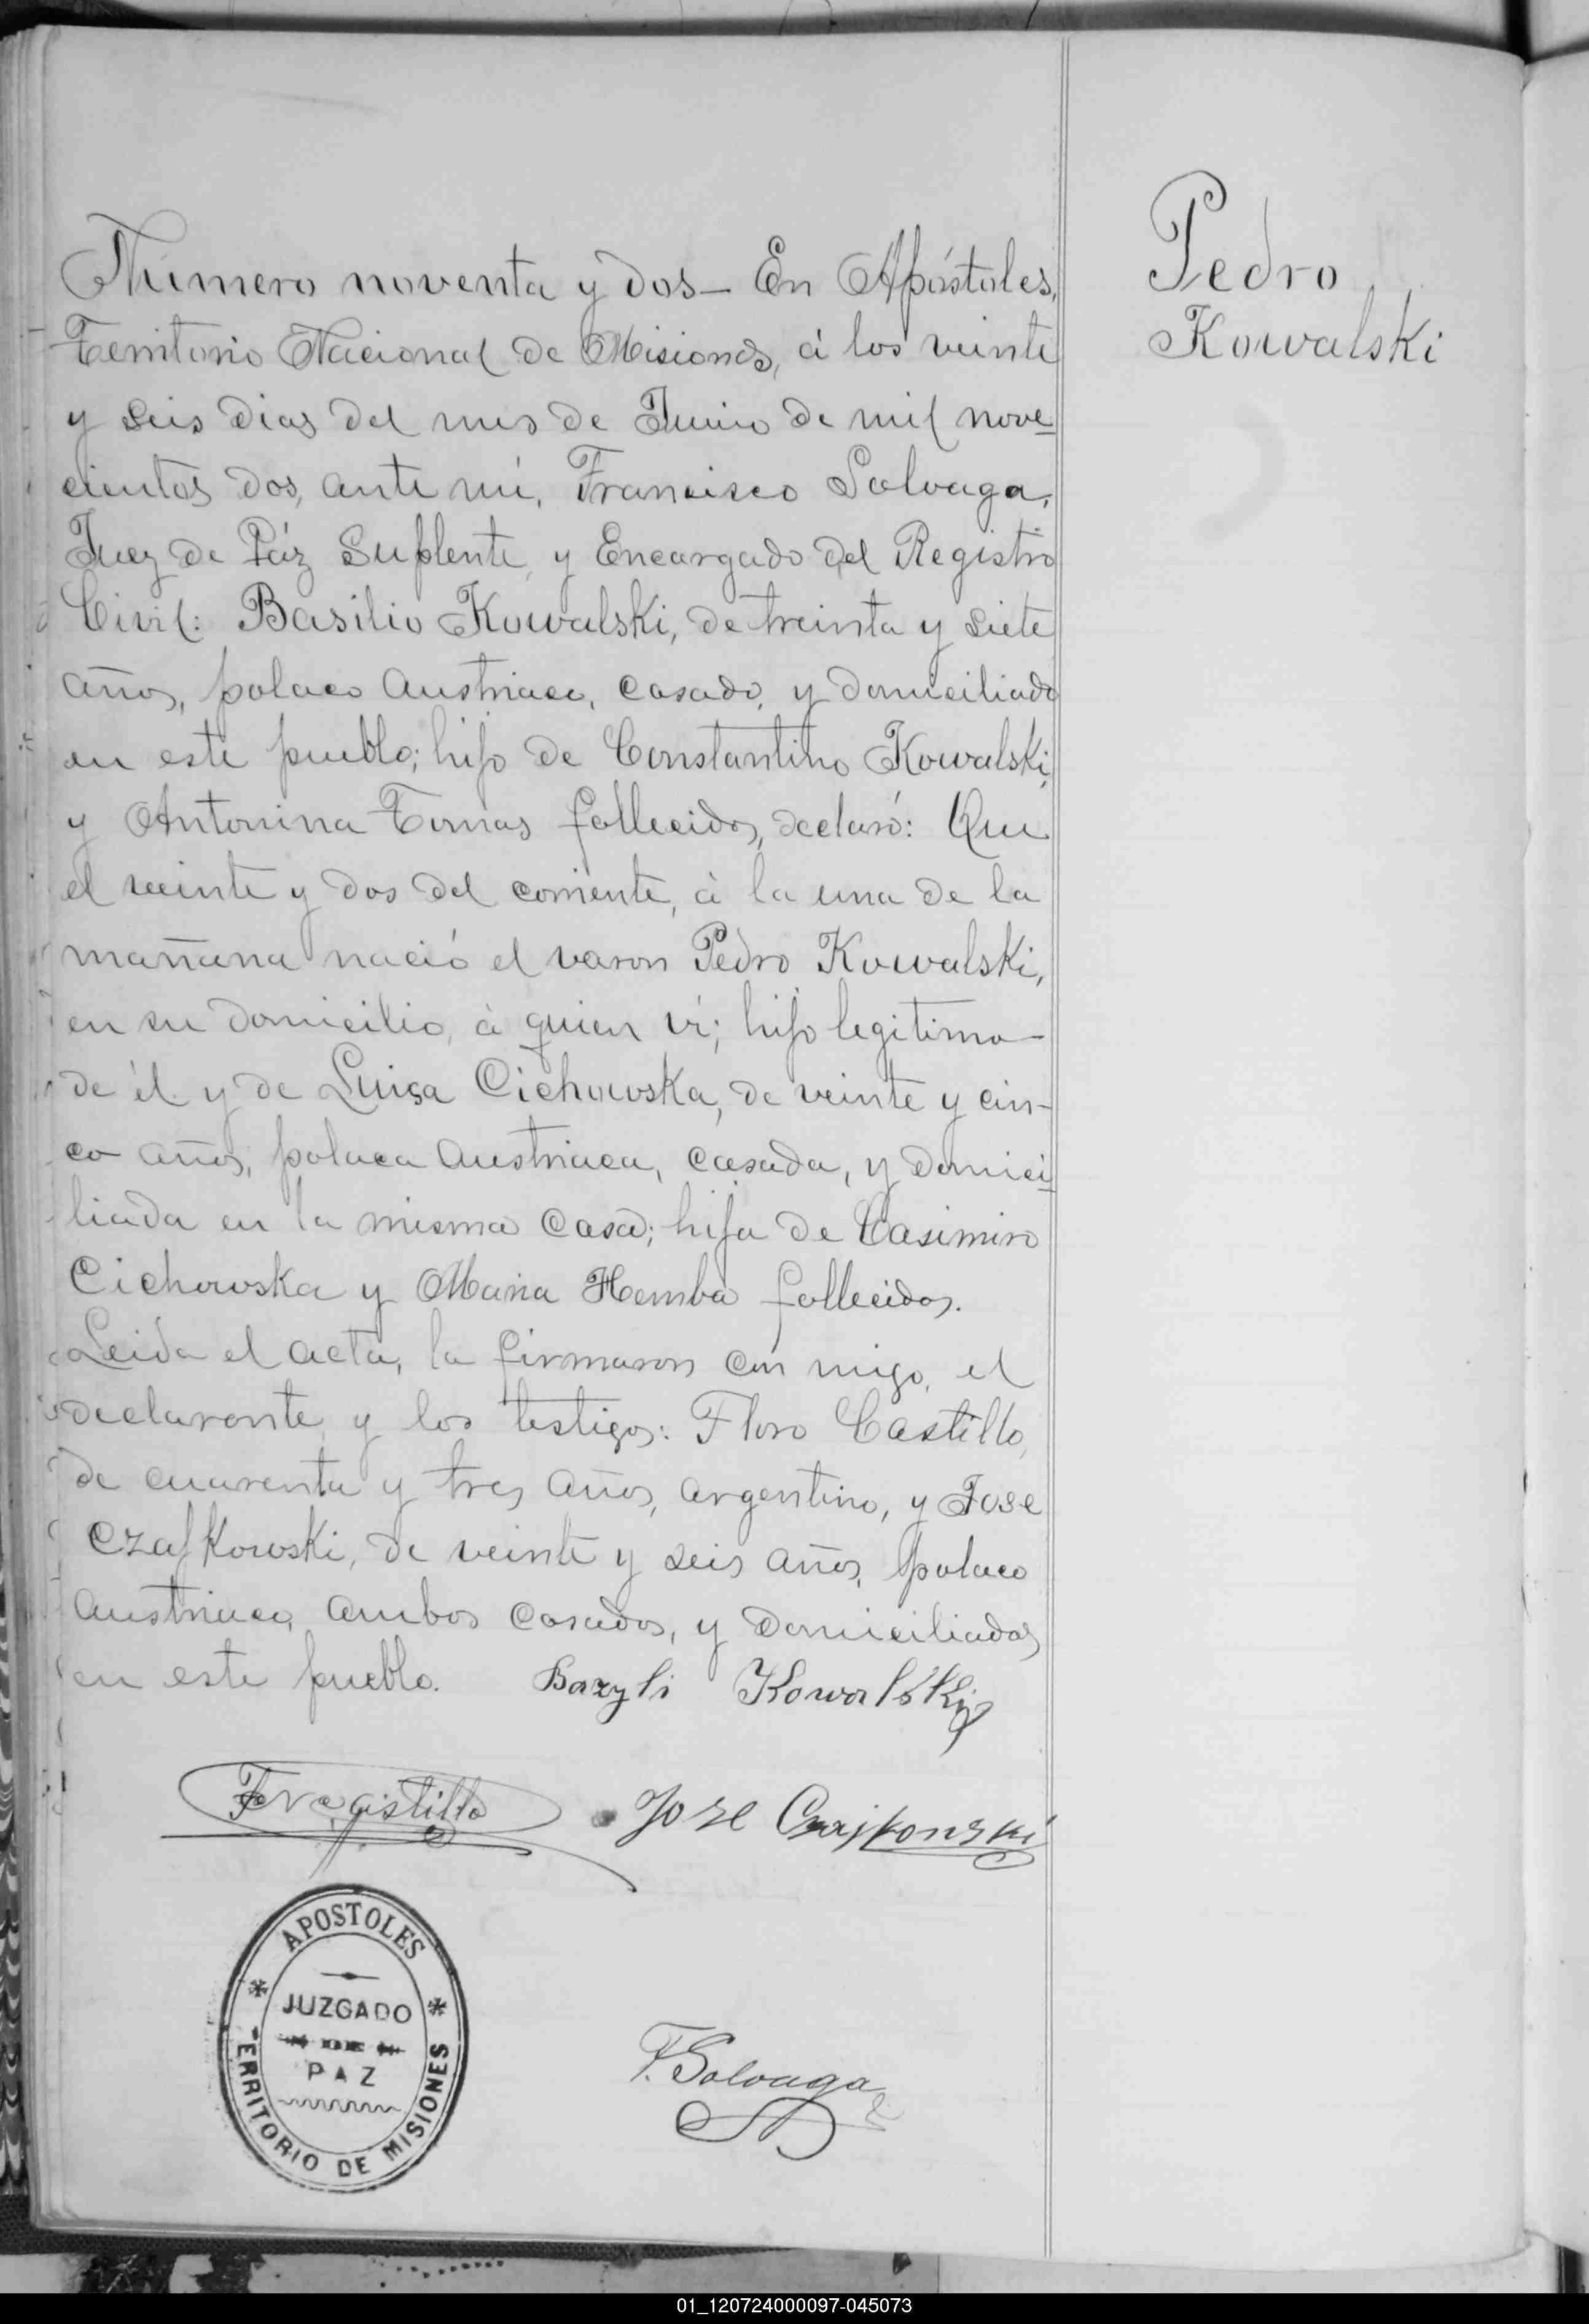 Número noventa y dos - En Apóstoles,
Territorio Nacional de Misiones, á los veinte
y seis dias del mes de Junio de mil nove-
cientos dos, ante mí, Francisco Solvaga,
Juez de Páz Suplente, y Encargado del Registro
Civil: Basilio Kowalski, de treinta y siete
años, polaco austriaco, casado, y domiciliado
en este pueblo; hijo de Constantino Kowalski,
y Antonina Tomas fallecidos, declaró: Que
el veinte y dos del corriente, á la una de la
mañana nació el varon Pedro Kowalski,
en su domicilio, á quien ví; hijo legitimo
de él y de Luisa Cichowska, de veinte y cin-
co años, polaca austriaca, casada, y domici-
liada en la misma casa; hija de Casimiro
Cichowska y Maria Hemba fallecidos.
Leida el acta, la firmaron con migo, el
declarante y los testigos: Floro Castillo,
de cuarenta y tres años, argentino, y Jose
Czajkowski, de veinte y seis años, polaco
austriaco, ambos casados, y domiciliados
en este pueblo. Bazyli Kowalski
Castillo Joze Czajkowski
APOSTOLES
JUZGADO
DE
PAZ
TERRITORIO DE MISIONES
F. Solvaga
Pedro
Kowalski
01_120724000097-045073